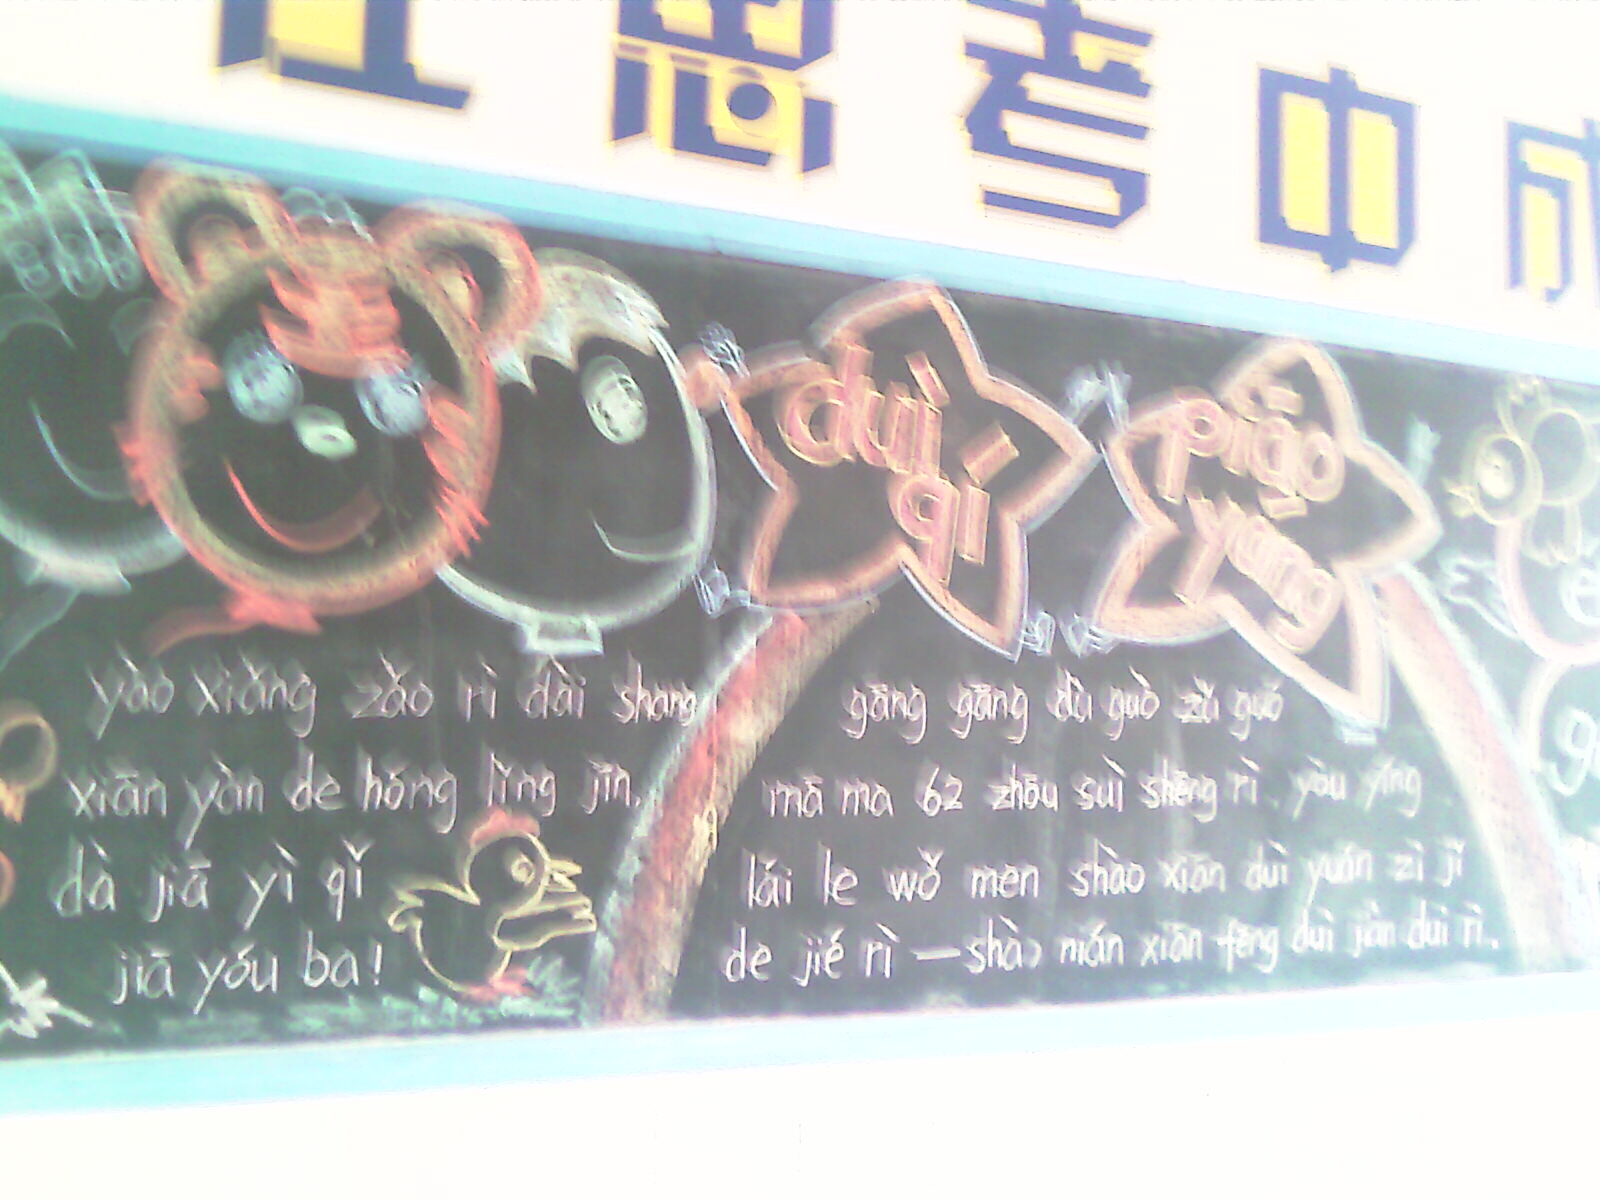 思考中成
duì
qí
piāo
yang
yào xiǎng zǎo rì dài shang
xiān yàn de hóng lǐng jīn,
dà jiā yì qǐ
jiā yóu ba!
gāng gāng dù guò zǔ guó
mā ma 62 zhōu suì shēng rì, yòu yíng
lái le wǒ men shào xiān duì yuán zì jǐ
de jié rì — shào nián xiān fēng duì jiàn duì rì.